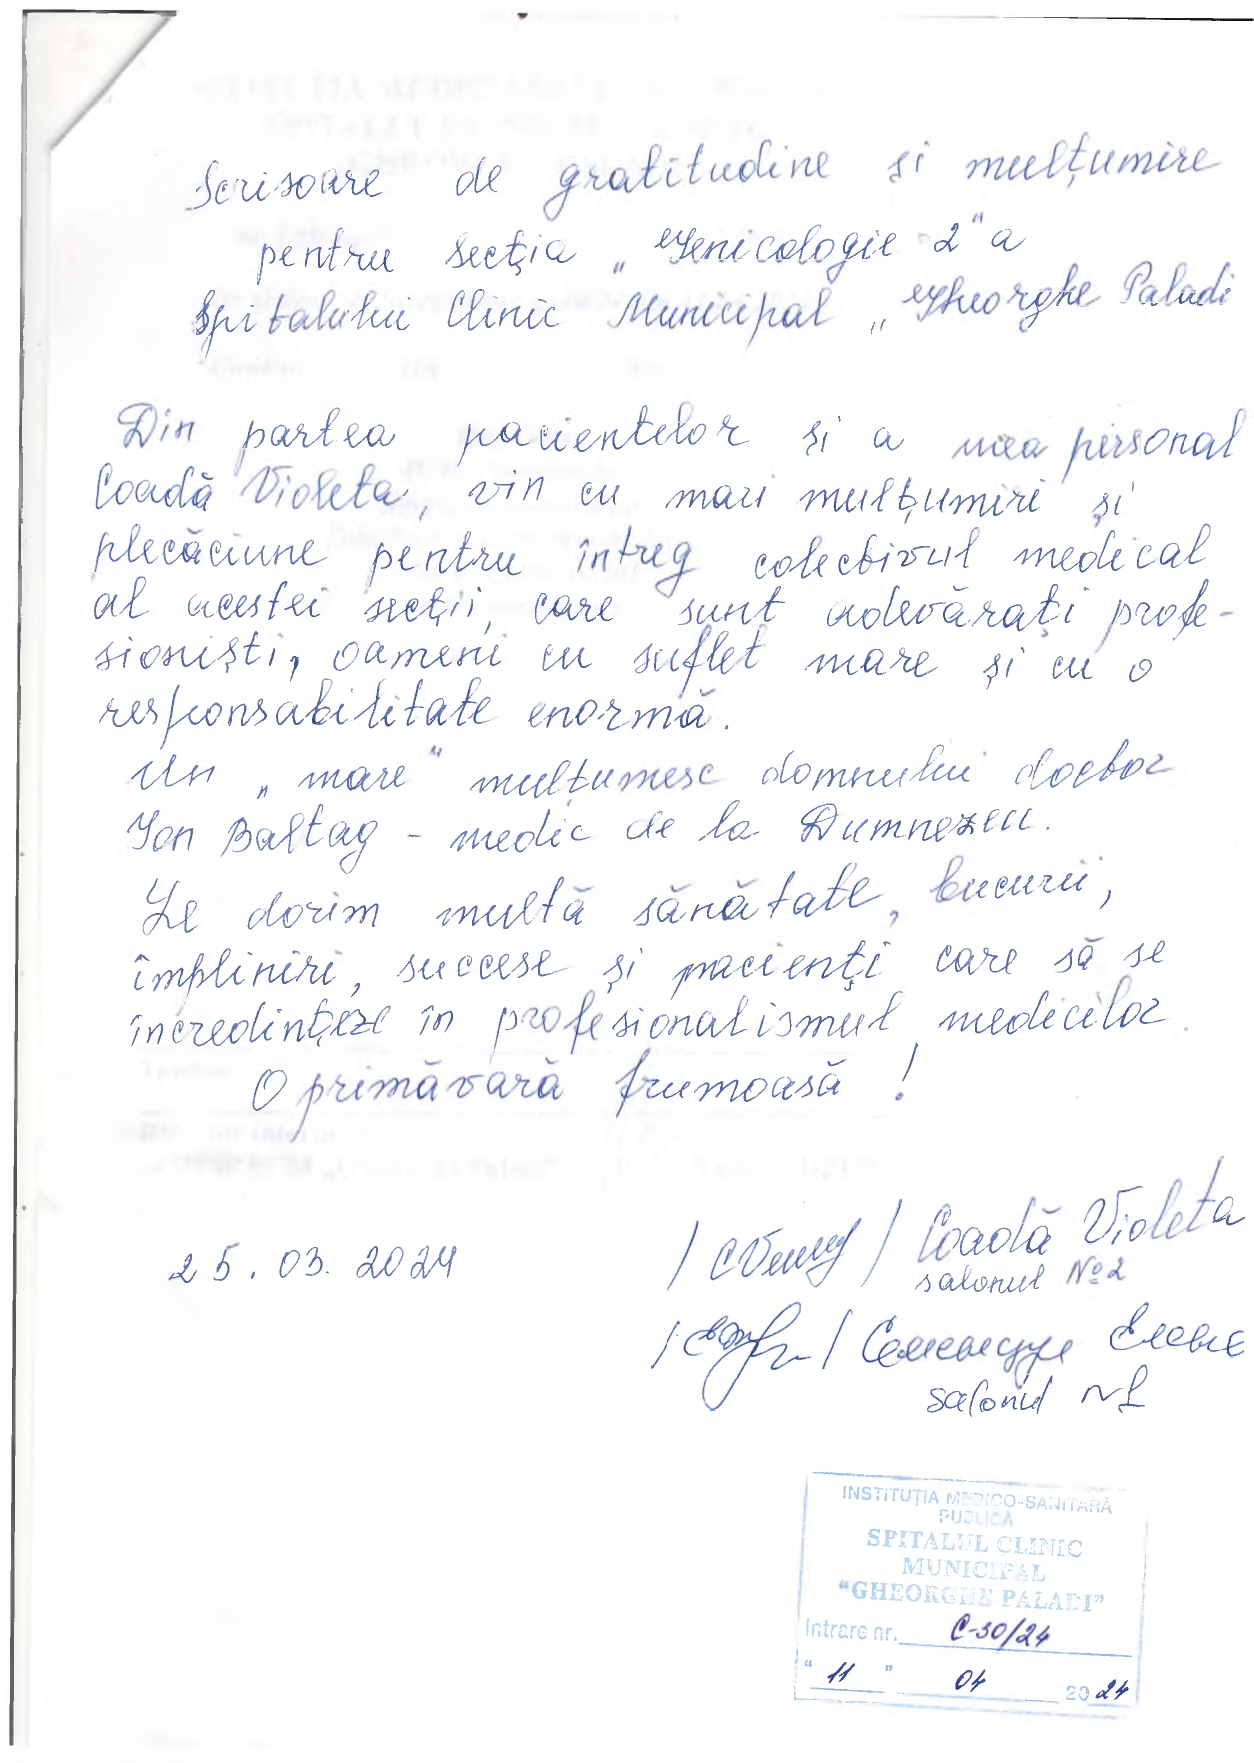 Scrisoare de gratitudine și mulțumire
pentru secția „Genicologie-2" a
Spitalului Clinic Municipal „Gheorghe Paladi
Din partea pacientelor și a mea personal
Coadă Violeta, vin cu mari mulțumiri și
plecăciune pentru întreg colectivul medical
al acestei secții, care sunt adevărați profe-
sioniști, oameni cu suflet mare și cu o
responsabilitate enormă.
Un „mare" mulțumesc domnului doctor
Ion Baltag - medic de la Dumnezeu.
Le dorim multă sănătate, bucurii,
împliniri, succese și pacienți care să se
încredințeze în profesionalismul medicilor.
O primăvară frumoasă!
25.03.2024
/ / Coadă Violeta
salonul №2
/ /
salonul n1
INSTITUȚIA MEDICO-SANITARĂ
PUBLICĂ
SPITALUL CLINIC
MUNICIPAL
“GHEORGHE PALADI”
Intrare nr. C-30/24
“ 11 ” 04 2024